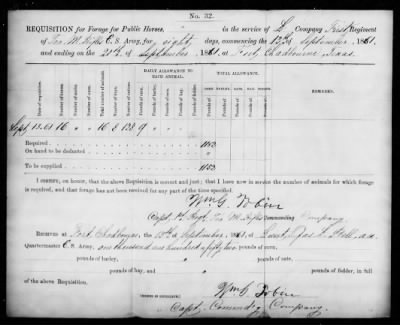 No. 32.
REQUISITION for Forage for Public Horses, in the service of L Company First Regiment
of Tex M. Rifles C. S. Army, for eight days, commencing the 13th of September, 1861
and ending on the 20th of September, 1861, at Fort Chadbourne Texas.
DAILY ALLOWANCE TO EACH ANIMAL. TOTAL ALLOWANCE.
Date of requisition. Number of horses. Number of mules. Number of oxen. Total number of animals. Number of days. Number of rations. Pounds of corn. Pounds of barley. Pounds of oats. Pounds of hay. Pounds of fodder. REMARKS.
Sept 13. 61 16 " " 16 8 128 9 " " 1152
Required 1152
On hand to be deducted "
To be supplied 1152
I certify, on honor, that the above Requisition is correct and just; that I have now in service the number of animals for which forage
is required, and that forage has not been received for any part of the time specified.
Wm G. Tobin
Capt 1st Regt. Tex M. Rifles Commanding Company.
RECEIVED at Fort Chadbourne the 13th of September, 1861, of Lieut
Quartermaster C. S. Army, one thousand one hundred fifty two pounds of corn,
pounds of barley, pounds of oats,
pounds of hay, and pounds of fodder, in full
of the above Requisition.
Wm G. Tobin
[SIGNED IN DUPLICATE.]
Capt. Commandg Company.